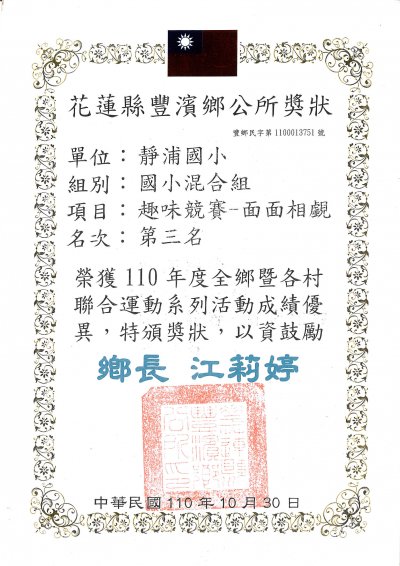 花蓮縣豐濱鄉公所獎狀
豐鄉民字第1100013751號
單位：靜浦國小
組別：國小混合組
項目：趣味競賽-面面相覷
名次：第三名
榮獲110年度全鄉暨各村
聯合運動系列活動成績優
異，特頒獎狀，以資鼓勵
鄉長 江莉婷
中華民國110年10月30日